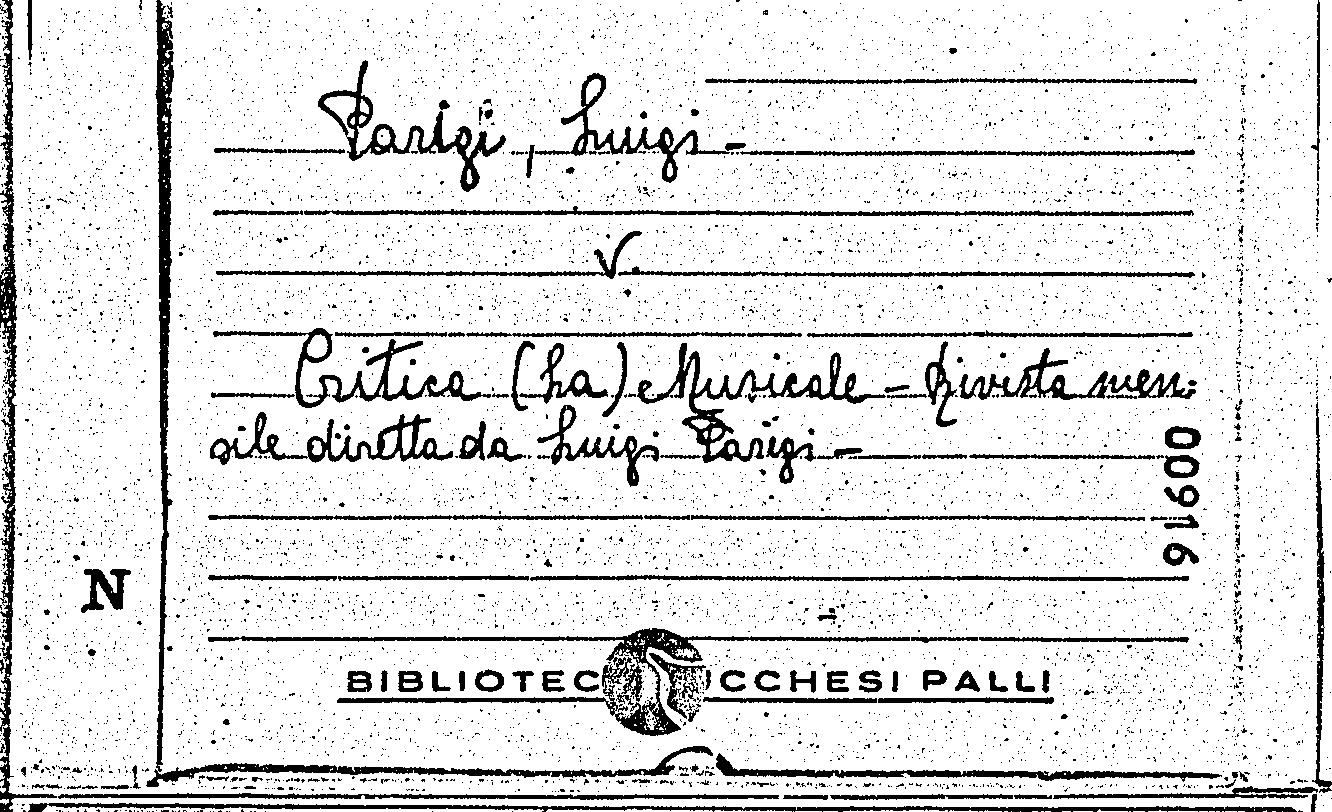 Parigi, Luigi -
V.
Critica (La) Musicale - Rivista men:
sile diretta da Luigi Parigi -
00916
N
BIBLIOTEC UCCHESI PALLI